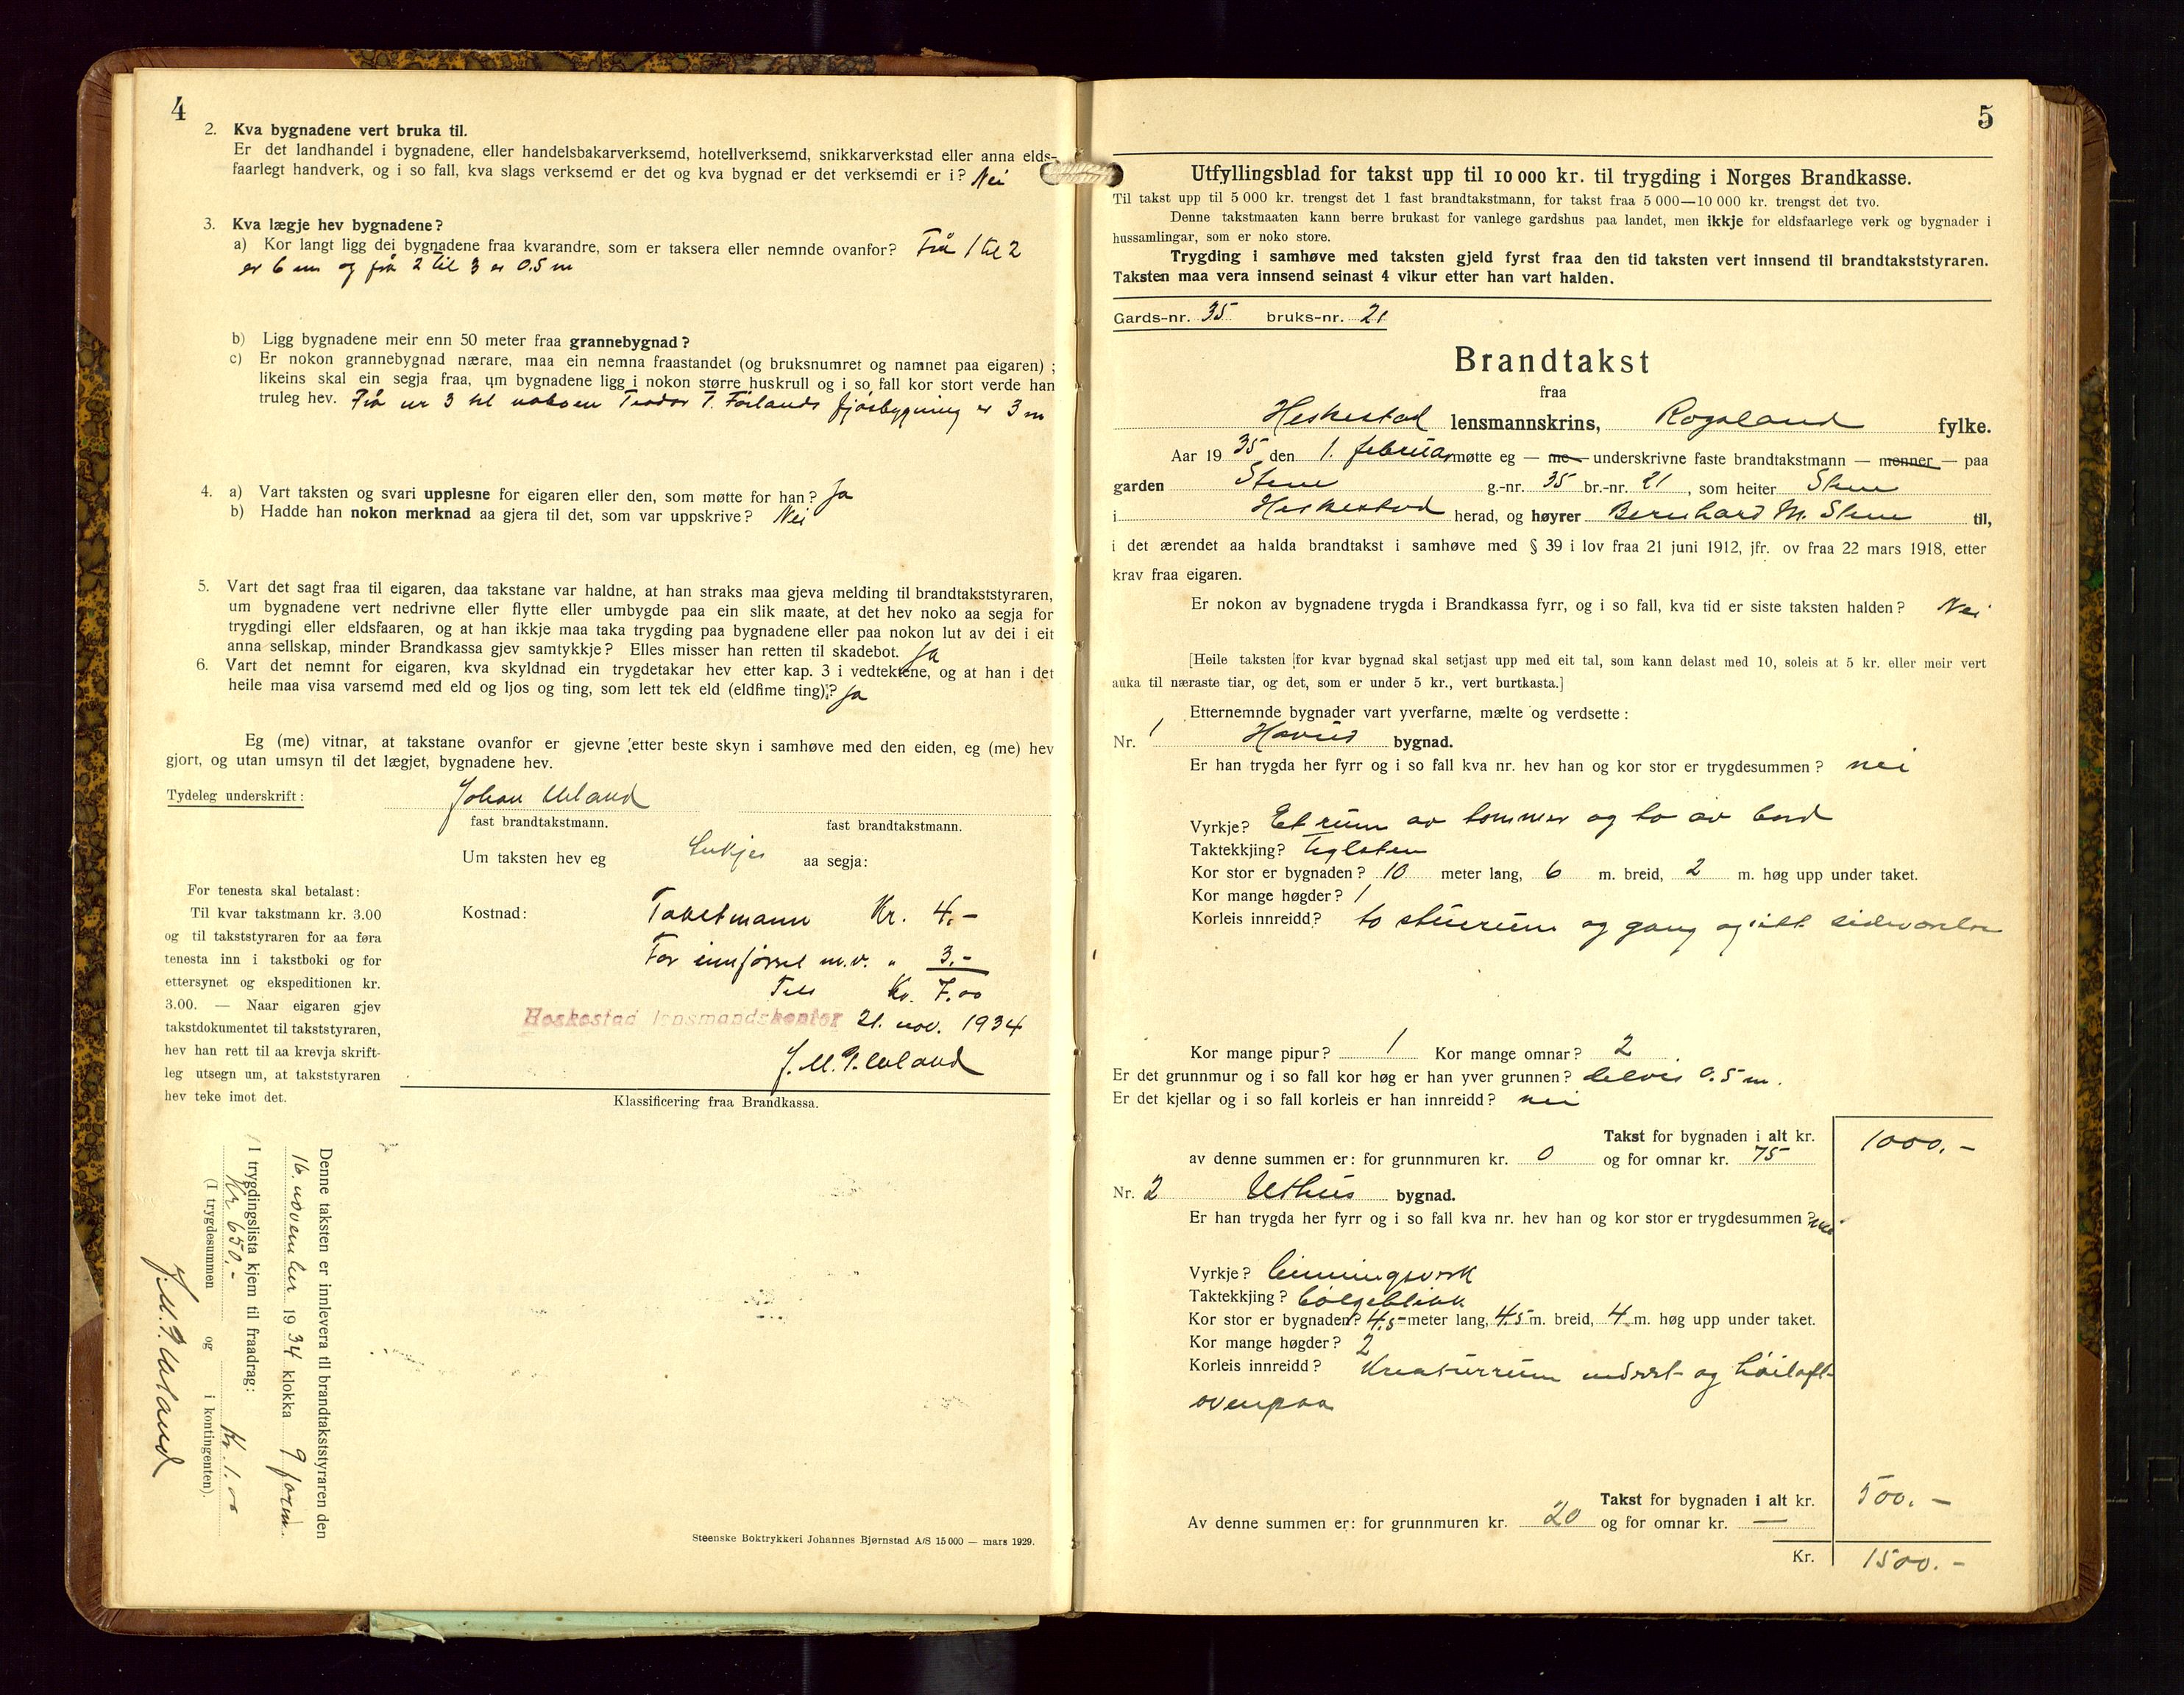 4
2. Kva bygnadene vert bruka til.
Er det landhandel i bygnadene, eller handelsbakarverksemd, hotellverksemd, snikkarverkstad eller anna elds-
faarlegt handverk, og i so fall, kva slags verksemd er det og kva bygnad er det verksemdi er i? Nei
3. Kva lægje hev bygnadene?
a) Kor langt ligg dei bygnadene fraa kvarandre, som er taksera eller nemnde ovanfor? Frå 1 til 2
er 6 m og frå 2 til 3 er 0.5 m
b) Ligg bygnadene meir enn 50 meter fraa grannebygnad?
c) Er nokon grannebygnad nærare, maa ein nemna fraastandet (og bruksnumret og namnet paa eigaren) ;
likeins skal ein segja fraa, um bygnadene ligg i nokon større huskrull og i so fall kor stort verde han
truleg hev. Frå nr 3 til naboen Teodor T. Förlands fjösbygning er 3 m
4. a) Vart taksten og svari upplesne for eigaren eller den, som møtte for han? Ja
b) Hadde han nokon merknad aa gjera til det, som var uppskrive? Nei
5. Vart det sagt fraa til eigaren, daa takstane var haldne, at han straks maa gjeva melding til brandtakststyraren,
um bygnadene vert nedrivne eller flytte eller umbygde paa ein slik maate, at det hev noko aa segja for
trygdingi eller eldsfaaren, og at han ikkje maa taka trygding paa bygnadene eller paa nokon lut av dei i eit
anna sellskap, minder Brandkassa gjev samtykkje? Elles misser han retten til skadebot. Ja
6. Vart det nemnt for eigaren, kva skyldnad ein trygdetakar hev etter kap. 3 i vedtektene, og at han i det
heile maa visa varsemd med eld og ljos og ting, som lett tek eld (eldfime ting)? Ja
Eg (me) vitnar, at takstane ovanfor er gjevne etter beste skyn i samhøve med den eiden, eg (me) hev
gjort, og utan umsyn til det lægjet, bygnadene hev.
Tydeleg underskrift: Johan Ueland
fast brandtakstmann. fast brandtakstmann.
Um taksten hev eg Inkjes aa segja:
For tenesta skal betalast:
Til kvar takstmann kr. 3.00
og til takststyraren for aa føra
tenesta inn i takstboki og for
ettersynet og ekspeditionen kr.
3.00. — Naar eigaren gjev
takstdokumentet til takststyraren,
hev han rett til aa krevja skrift-
leg utsegn um, at takststyraren
hev teke imot det.
Kostnad: Takstmann Kr. 4.-
For innførsel m.v. " 3.-
Tils Kr. 7.00
Heskestad lensmandskontor 21. nov. 1934
J. M. P. Ueland
Klassificering fraa Brandkassa.
Denne taksten er innlevera til brandtakststyraren den
16. november 1934 klokka 9 form.
I trygdingslista kjem til fraadrag:
Kr 650.- Kr. 1.00
(I trygdesummen og i kontingenten).
J. M. P. Ueland
Steenske Boktrykkeri Johannes Bjørnstad A/S 15 000 — mars 1929.
5
Utfyllingsblad for takst upp til 10 000 kr. til trygding i Norges Brandkasse.
Til takst upp til 5 000 kr. trengst det 1 fast brandtakstmann, for takst fraa 5 000—10 000 kr. trengst det tvo.
Denne takstmaaten kann berre brukast for vanlege gardshus paa landet, men ikkje for eldsfaarlege verk og bygnader i
hussamlingar, som er noko store.
Trygding i samhøve med taksten gjeld fyrst fraa den tid taksten vert innsend til brandtakststyraren.
Taksten maa vera innsend seinast 4 vikur etter han vart halden.
Gards-nr. 35 bruks-nr. 21
Brandtakst
fraa
Heskestad lensmannskrins, Rogaland fylke.
Aar 1935 den 1. februar møtte eg — me — underskrivne faste brandtakstmann — menner — paa
garden Stene g.-nr. 35 br.-nr. 21, som heiter Stene
i Heskestad herad, og høyrer Bernhard M. Stene til,
i det ærendet aa halda brandtakst i samhøve med § 39 i lov fraa 21 juni 1912, jfr. ov fraa 22 mars 1918, etter
krav fraa eigaren.
Er nokon av bygnadene trygda i Brandkassa fyrr, og i so fall, kva tid er siste taksten halden? Nei
[Heile taksten for kvar bygnad skal setjast upp med eit tal, som kann delast med 10, soleis at 5 kr. eller meir vert
auka til næraste tiar, og det, som er under 5 kr., vert burtkasta.]
Etternemnde bygnader vart yverfarne, mælte og verdsette:
Nr. 1 Hovus bygnad.
Er han trygda her fyrr og i so fall kva nr. hev han og kor stor er trygdesummen? nei
Vyrkje? Et rum av tømmer og to av bord
Taktekkjing? teglsten
Kor stor er bygnaden? 10 meter lang, 6 m. breid, 2 m. høg upp under taket.
Kor mange høgder? 1
Korleis innreidd? to stuerum og gang og
Kor mange pipur? 1 Kor mange omnar? 2
Er det grunnmur og i so fall kor høg er han yver grunnen? delvis 0.5 m.
Er det kjellar og i so fall korleis er han innreidd? nei
Takst for bygnaden i alt kr. 1000.-
av denne summen er: for grunnmuren kr. 0 og for omnar kr. 75
Nr. 2 Uthus bygnad.
Er han trygda her fyrr og i so fall kva nr. hev han og kor stor er trygdesummen? nei
Vyrkje? binningsverk
Taktekkjing? bølgeblikk
Kor stor er bygnaden? 4.5 meter lang, 4.5 m. breid, 4 m. høg upp under taket.
Kor mange høgder? 2
Korleis innreidd? Kreaturrum nederst og høiloft
ovenpaa
Takst for bygnaden i alt kr. 500.-
Av denne summen er: for grunnmuren kr. 20 og for omnar kr. —
Kr. 1500.-